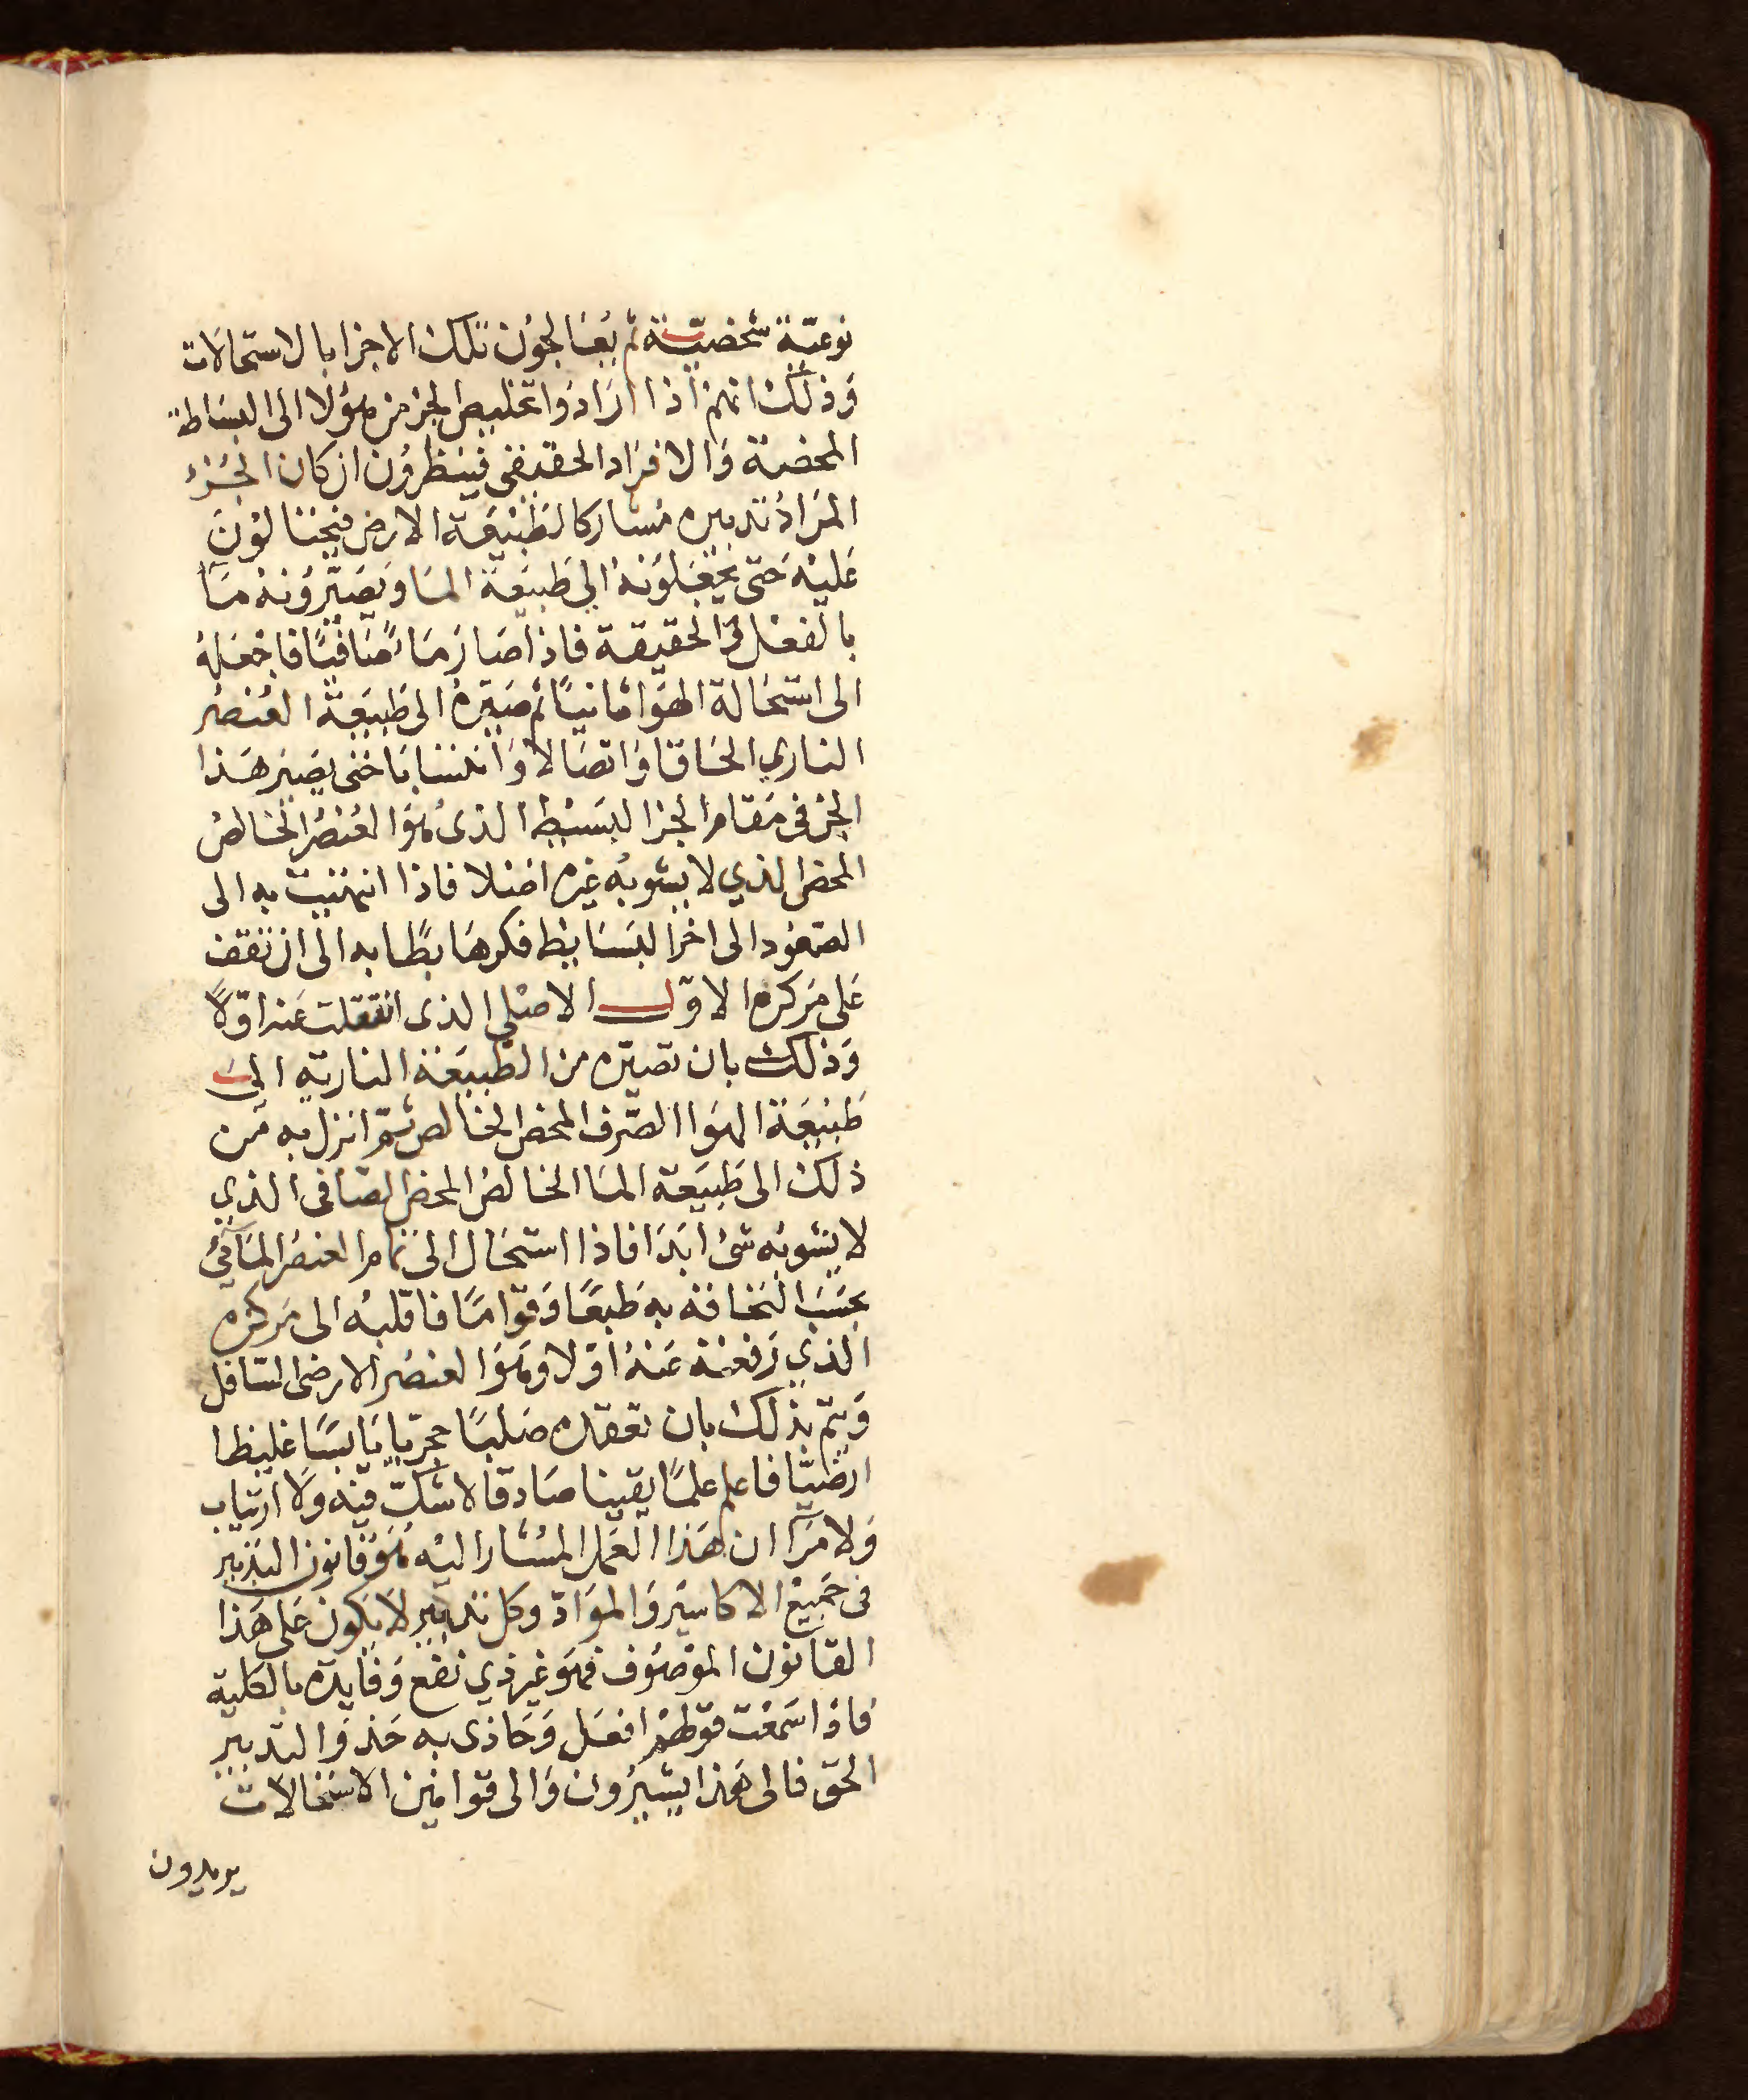 نوعيّة شخصيّة ثم يُعَالجون تلك الاجزا بالاستحالات
وَذلك انهم اذا ارَادوَا تخليص الجز من هؤلا الى البسَاطة
المحضة وَالافرَاد الحقيقى فينظرون ان كان الجُزءُ
المرَادُ تدبيره مُشاركا لطبيْعَة الارض فيحتالوْنَ
عَليْه حَتى يجعَلوَنهُ الى طبيعَة المَا وَيصَيّرُونهُ مَآ
بالفعْل فى الحقيقة فاذا صَارَ مَاءً صَافيًا فاجْعَلهُ
الى استحَالة الهوَا ثانيًا ثم صَيّرهُ الى طَبيعَة العُنصُر
الناري الحَاقا وَاتصَالا وَانتسَابًا حتى يصَير هَذا
الجز فى مَقام الجز البسَيْط الذى هُوَ العُنصُر الخَالصُ
المحض الذي لا يشوبهُ غيره اصْلا فاذا انتهيت به الى
الصّعُود الى اخر البسَايط فكرهَابطًا به الى ان تقف
عَلى مَركزه الاوّل الاصْلي الذى انتقلت عَنه اوّلاً
وَذلك بان تصيّره من الطّبيعَة الناريّه الى
طبيْعَة الهوَا الصّرف المحض الخالص ثمّ انزل به من
ذلكَ الى طَبيَعة المَا الخالصُ المحض الصَافى الذي
لا يشوبه شئ ابَدَا فاذا استحَال الى تمام العنصُر المَآئىُ
بحسَبَ التحَاقه به طَبعًا وَقوّامًا فاقلبُه الى مَركزه
الذي رَفعته عَنهُ اوّلا وهُوَ العنصُر الارضى السَافل
وَيتم بذلك بان تعقده صَلبًا حجريّا يَابسًا غليظا
ارضيّا فاعلم علمًا يقينا صَادقا لا شكّ فيْه ولا ارتياب
وَلا مرَآ ان هَذا العَمل المُشار اليْه هُوَ قانون التدْبير
فى جَميْع الاكاسيَر وَالموَادّ وكل تدبيْر لا يَكون عَلى هَذا
القانون الموْصُوف فهوَ غير ذي نفع وَفايدَه بالكلية
فاذا سَمعْت قوْلهمْ افعَل وَحَاذى به حَذوَ التدبير
الحق فالى هَذا يشيرُون وَالى قوانين الاستحالات
يريدون